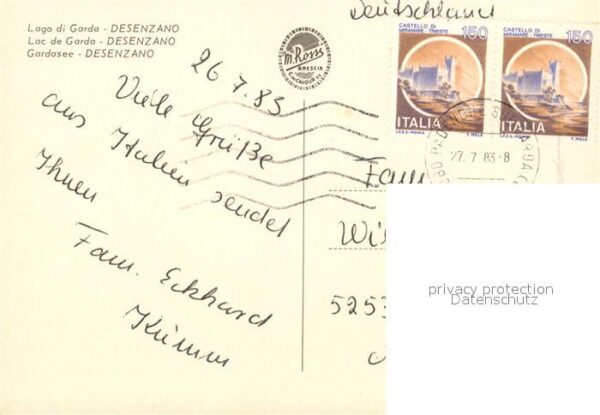 Lago di Garda - DESENZANO
Lac de Garda - DESENZANO
Gardasee - DESENZANO
M. Rossi
BRESCIA
26.7.83
Viele Grüße
aus Italien sendet
Ihnen
Fam. Eckhard
Deutschland
CASTELLO DI
MIRAMARE - TRIESTE
150
ITALIA
I.P.Z.S.-ROMA
T. MELE
CASTELLO DI
MIRAMARE - TRIESTE
150
ITALIA
I.P.Z.S.-ROMA
T. MELE
27.7.83-8
Fam
5253
privacy protection
Datenschutz